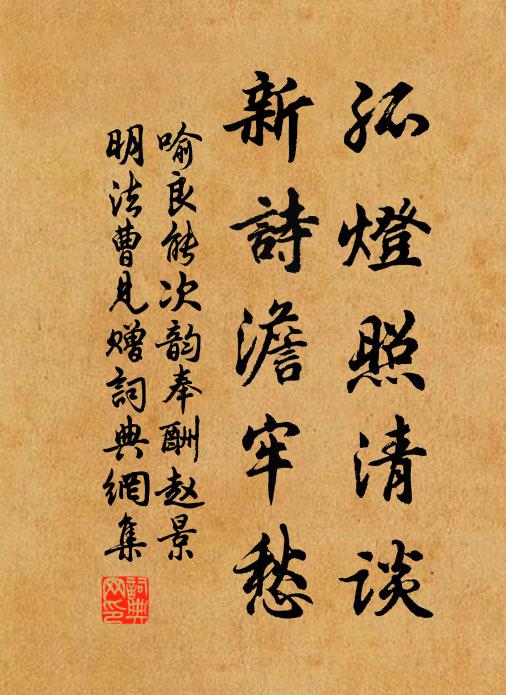 孤燈照清談
新詩澹牢愁
喻良能次韵奉酬赵景
明法曹見赠詞典網集
詞典
网印